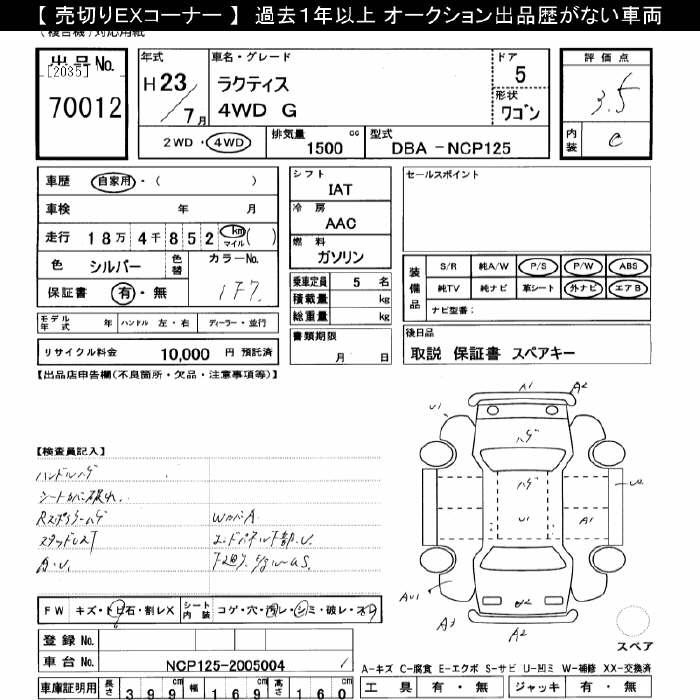 【 売切りEXコーナー 】 過去1年以上 オークション出品歴がない車両
(複合機) 対応用紙
出品No.
[2035]
70012
年式
H23/7月
車名・グレード
ラクティス
4WD G
ドア
5
形状
ワゴン
評価点
3.5
内装
C
2WD・4WD
排気量
1500 cc
型式
DBA -NCP125
車歴 自家用・( )
車検 年 月
走行 18万 4千 852 km マイル ( )
色 シルバー 色替
カラーNo.
1F7
保証書 有・無
シフト
IAT
冷房
AAC
燃料
ガソリン
乗車定員 5 名
積載量 kg
総重量 kg
書類期限
月 日
セールスポイント
装備品
S/R 純A/W P/S P/W ABS
純TV 純ナビ 革シート 外ナビ エアB
ナビ型番:
後日品
取説 保証書 スペアキー
モデル年式 年 ハンドル 左・右 ディーラー・並行
リサイクル料金 10,000 円 預託済
【出品店申告欄(不良箇所・欠品・注意事項等)】
【検査員記入】
ハンドルハゲ
シートカバー破れ.
Rスポイラーハゲ
スタッドレス
A・U.
WカバーA
エンドパネル下部.U.
A1 A2
U1
ハゲ
ハゲ
U1
A1
AU1
A2
A2
FW キズ・トビ石・割レX
シート内装 コゲ・穴・汚レ・シミ・破レ・スレ
登録 No.
車台 No. NCP125-2005004
スペア
A-キズ C-腐食 E-エクボ S-サビ U-凹ミ W-補修 XX-交換済
車庫証明用 長さ 399 cm 幅 169 cm 高さ 160 cm
工具 有・無 ジャッキ 有・無